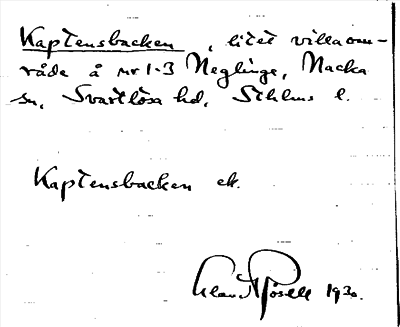 Kaptensbacken, litet villaom-
råde å nr 1-3 Neglinge, Nacka
sn, Svartlösa hd, Sthlms l.
Kaptensbacken ek.
1930.